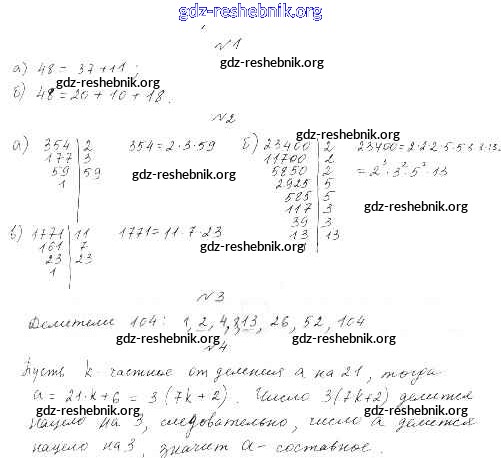 gdz-reshebnik.org
№1
а) 48 = 37 + 11;
gdz-reshebnik.org
gdz-reshebnik.org
б) 48 = 20 + 10 + 18.
№2
gdz-reshebnik.org
а) 354 | 2 354 = 2·3·59 б) 23400 | 2 23400 = 2·2·2·5·5·3·3·13=
177 | 3 11700 | 2
59 | 59 5850 | 2 = 2³·3²·5²·13
gdz-reshebnik.org
1 2925 | 5
585 | 5
117 | 3 gdz-reshebnik.org
39 | 3
в) 1771 | 11 1771 = 11·7·23 13 | 13
161 | 7 gdz-reshebnik.org
23 | 23
1
№3
Делители 104: 1, 2, 4, 8, 13, 26, 52, 104
gdz-reshebnik.org gdz-reshebnik.org
№4
Пусть k - частное от деления а на 21, тогда
а = 21·k + 6 = 3(7k + 2). Число 3(7k+2) делится
gdz-reshebnik.org gdz-reshebnik.org
нацело на 3, следовательно, число а делится
нацело на 3, значит а - составное.